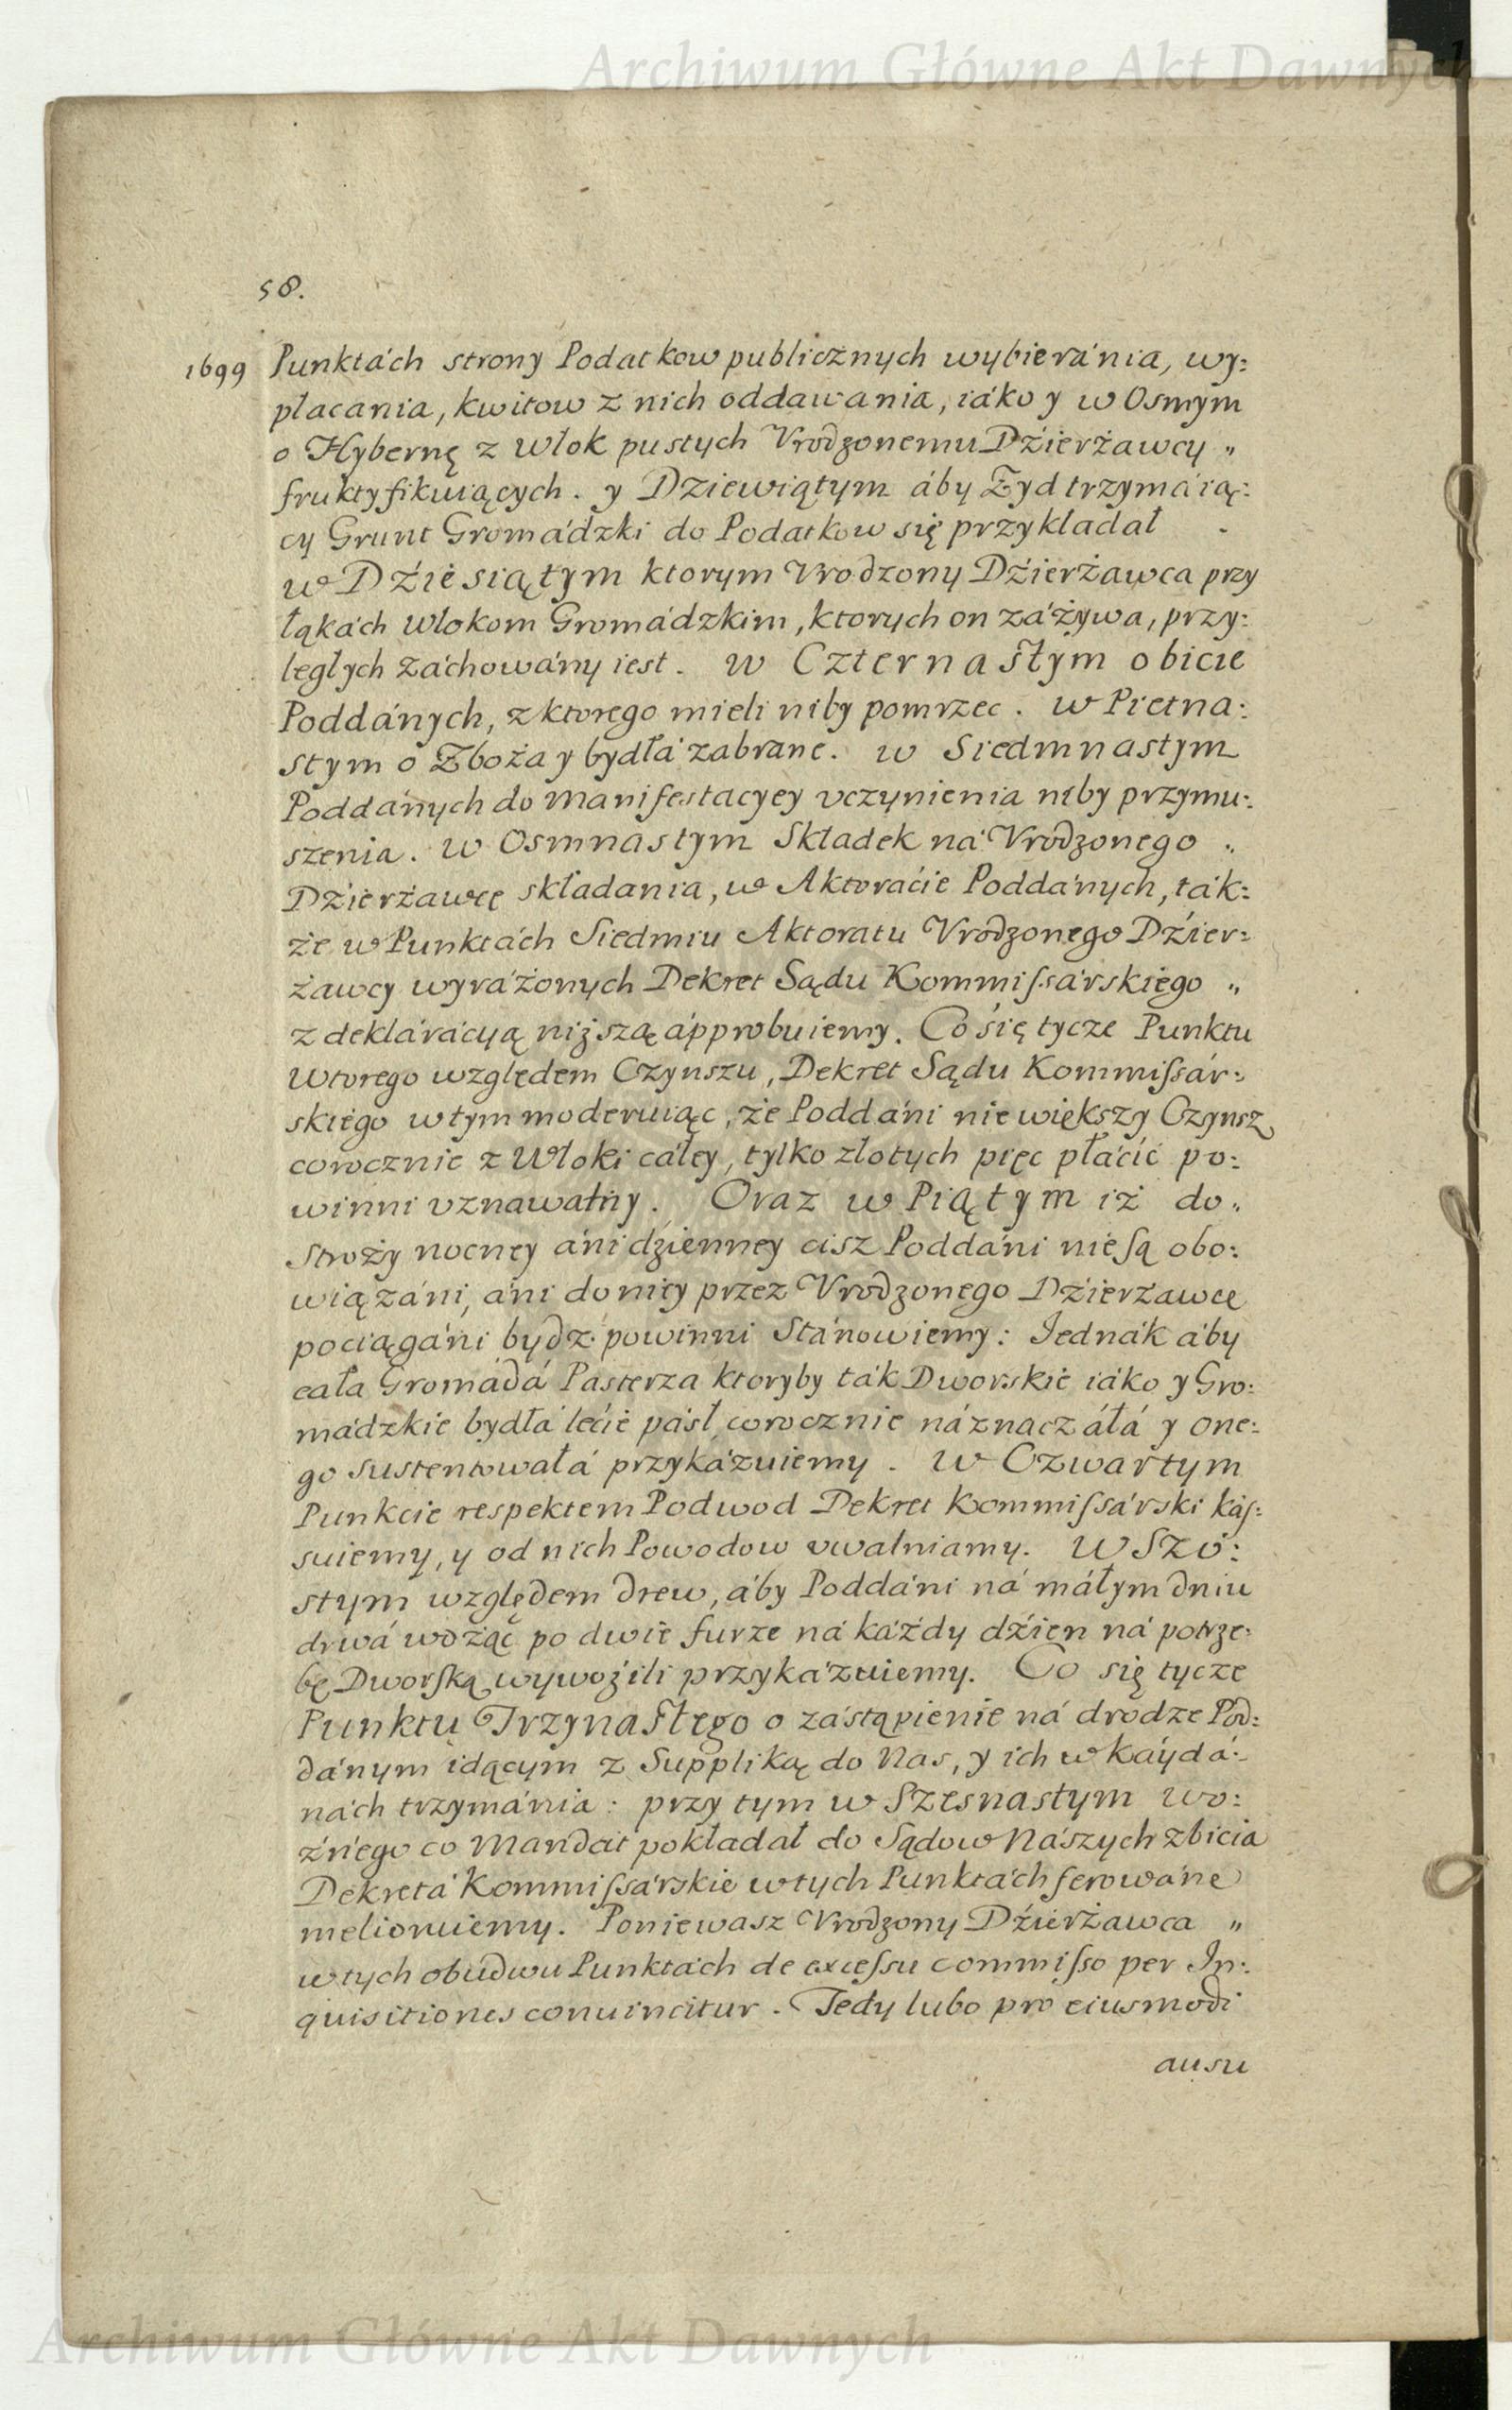 Archiwum Główne Akt Dawnych
58.
1699 Punktách strony Podatkow publicznych wybieránia, wy:
płacania, kwitow z nich oddawania, iáko y w Osmym
o Hybernę z Włok pustych Vrodzonemu Dźierżawcy „
fruktyfikuiących. y Dziewiątym áby Żyd trzymáią:
cy Grunt Gromádzki do Podatkow się przykładał -
w Dźiesiątym ktorym Vrodzony Dźierżawca przy
łąkách Włokom Gromádzkim, ktorych on záżywa, przy:
ległych záchowány iest. w Czternastym o bicie
Poddánych, z ktorego mieli niby pomrzec. w Pietna:
stym o Zboża y bydłá zabrane. w Siedmnastym
Poddánych do Manifestacyey vczynienia niby przymu:
szenia. w Osmnastym Składek ná Vrodzonego „
Dźierżawcę składania, w Aktoráćie Poddánych, ták:
że w Punktách Siedmiu Aktoratu Vrodzonego Dźier:
żawcy wyráżonych Dekret Sądu Kommissárskiego „
z deklárácyą niższą ápprobuiemy. Co się tycze Punktu
Wtorego względem Czynszu, Dekret Sądu Kommissár:
skiego w tym moderuiąc, że Poddáni nie większy Czynsz
corocznie z Włoki cáłey, tylko złotych pięc płáćić po:
winni vznawamy. Oraz w Piątym iż do„
Stroży nocney áni dzienney cisz Poddáni nie są obo:
wiązáni, áni do niey przez Vrodzonego Dźierżawcę
pociągáni bydz powinni Stánowiemy: Jednák áby
cała Gromádá Pásterza ktoryby ták Dworskie iáko y Gro:
mádzkie bydłá lećie pásł, corocznie náznaczáłá y one:
go sustentowałá przykázuiemy. W Czwartym
Punkcie respektem Podwod Dekret Kommissárski kás:
suiemy, y od nich Powodow vwalniamy. W Szo:
stym względem drew, áby Poddáni ná máłym dniu
drwá wożąc po dwie furze ná káżdy dźien ná potrze:
bę Dworską wywoźili przykázuiemy. Co się tycze
Punktu Trzynastego o zástąpienie ná drodze Pod:
dánym idącym z Suppliką do Nas, y ich w káydá:
nách trzymánia: przy tym w Szesnastym Wo:
źnego co Mandat pokładał do Sądow Nászych zbicia
Dekretá Kommissárskie w tych Punktách ferowáne
melioruiemy. Poniewasz Vrodzony Dźierżawca „
w tych obudwu Punktách de excessu commisso per In:
quisitiones conuincitur. Tedy lubo pro eiusmodi
ausu
Archiwum Główne Akt Dawnych